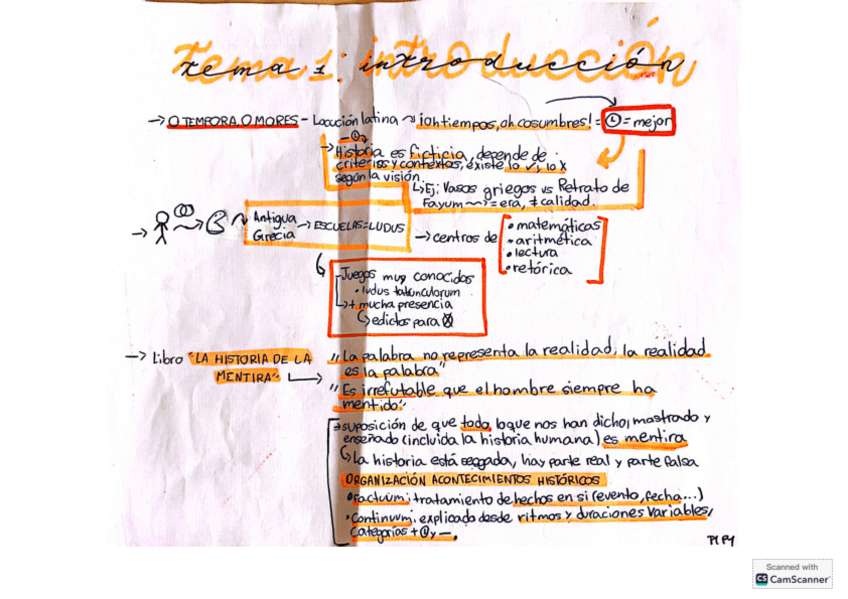 tema 1: introducción
→ O TEMPORA, O MORES - Locución latina ⤳ ¡oh tiempos, oh cosumbres! = = mejor
→ Historia es ficticia, depende de
criterios y contextos, existe lo ✓ y lo X
según la visión.
↳ Ej: Vasos griegos vs Retrato de
Fayum ⤳ = era, ≠ calidad.
→ Antigua
Grecia → ESCUELAS = LUDUS
→ centros de
• matemáticas
• aritmética
• lectura
• retórica
Juegos muy conocidos
• ludus
→ + mucha presencia
↳ edictos para
→ Libro "LA HISTORIA DE LA
MENTIRA" →
"La palabra no representa la realidad, la realidad
es la palabra"
"Es irrefutable que el hombre siempre ha
mentido"
→ suposición de que todo lo que nos han dicho, mostrado y
enseñado (incluida la historia humana) es mentira
↳ La historia está sesgada, hay parte real y parte falsa
ORGANIZACIÓN ACONTECIMIENTOS HISTÓRICOS
• Factuum: tratamiento de hechos en si (evento, fecha...)
• Continuum: explicado desde ritmos y duraciones variables,
categorías + y -.
Scanned with
CS CamScanner